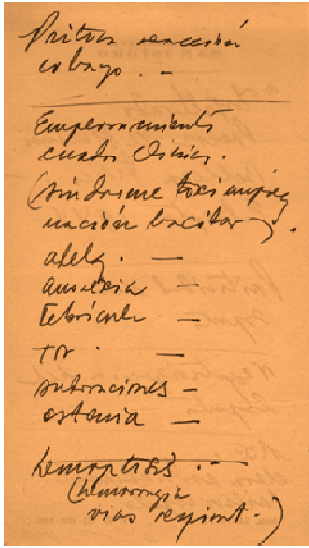 reacción
esbozo . -
Empeoramiento
cuadro clínico.
(síndrome toxi impreg
nación bacilar -).
adelg. —
anorexia —
febrícula —
tos . —
sudoraciones -
astenia —
hemoptisis . -
(hemorragia
vías respirat.)